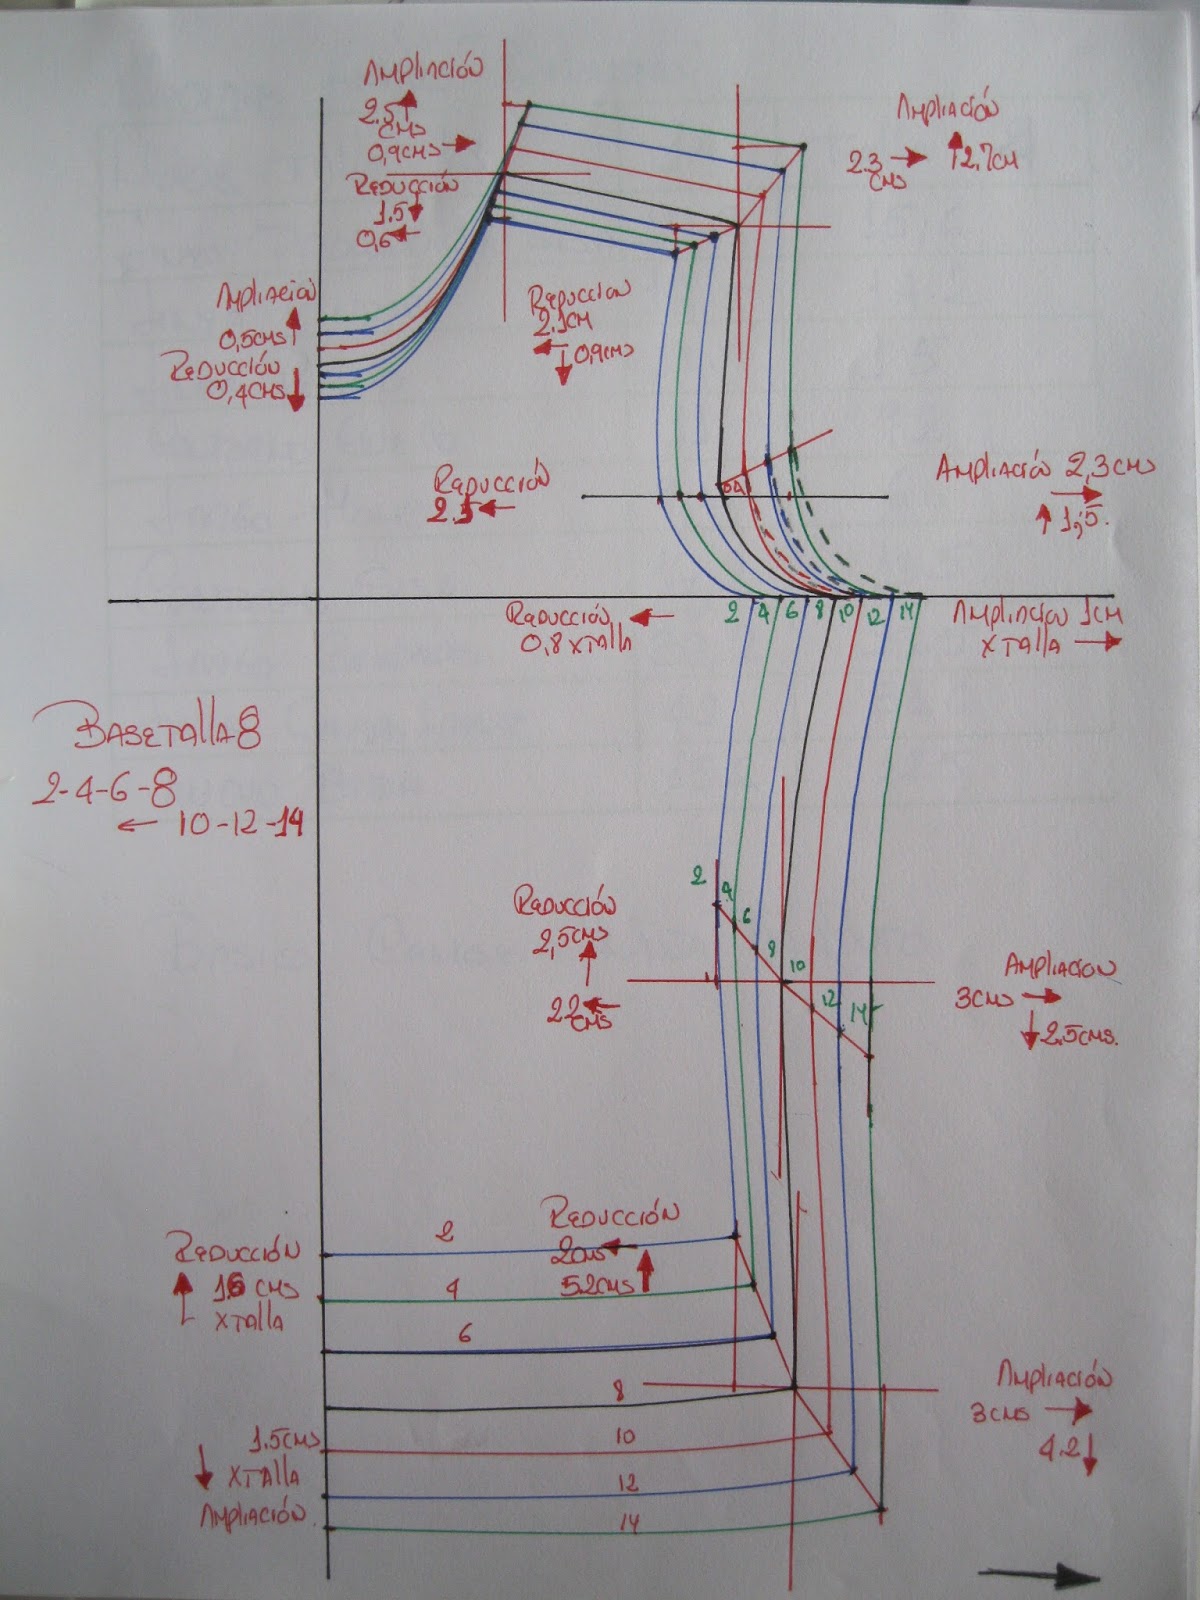 Ampliación
2.5
cms
0,9cms
Reducción
1.5
0,6
Ampliación
2.3
cms
2.7cm
Ampliación
0,5cms
Reducción
0,4cms
Reducción
2.1cm
0,9cms
Reducción
2.5
Ampliación 2,3cms
1,5.
Reducción
0,8 x talla
2 4 6 8 10 12 14
Ampliación 1cm
x talla
Base talla 8
2-4-6-8
10-12-14
Reducción
2,5cms
22
cms
2
4
6
8
10
12
14
Ampliación
3cms
2.5cms.
Reducción
16 cms
x talla
2
4
6
Reducción
2cms
52cms
8
10
12
14
1.5cms
x talla
Ampliación
Ampliación
3cms
4.2